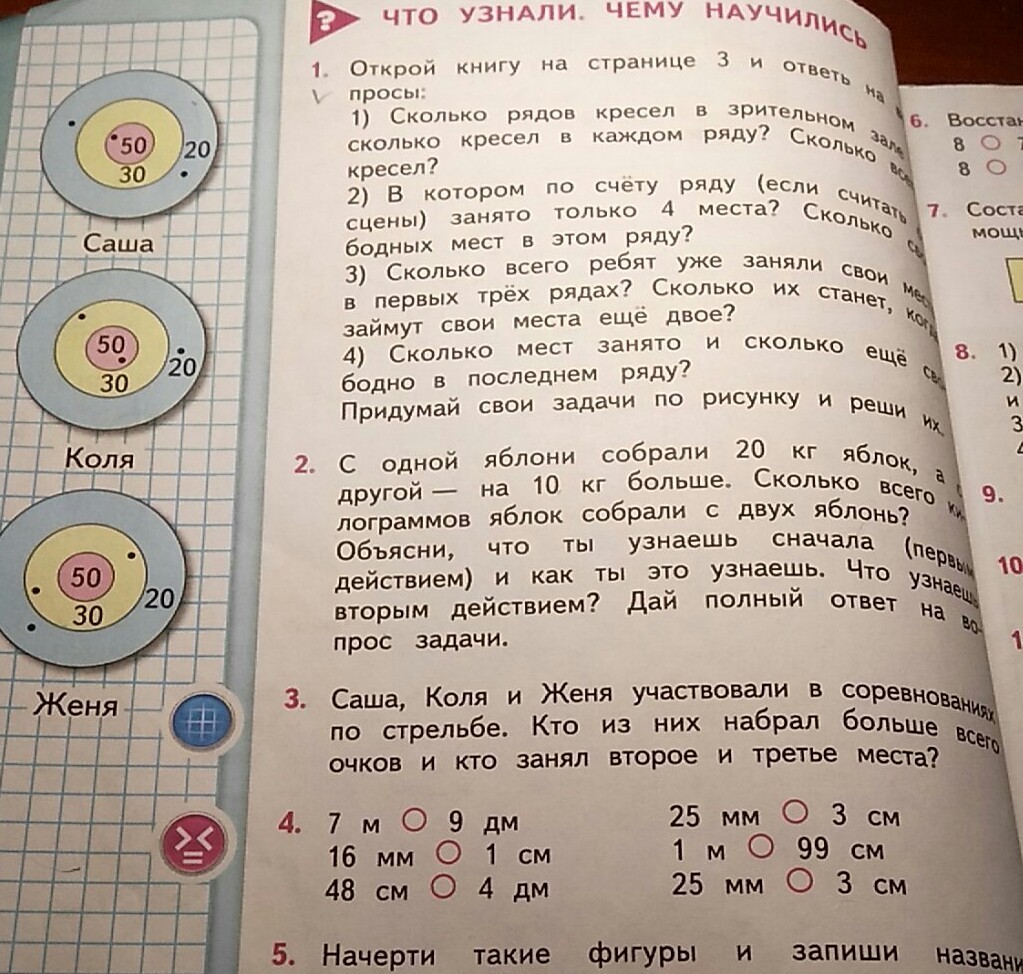 ? ЧТО УЗНАЛИ. ЧЕМУ НАУЧИЛИСЬ
1. Открой книгу на странице 3 и ответь на в
просы:
1) Сколько рядов кресел в зрительном зале
сколько кресел в каждом ряду? Сколько все
кресел?
2) В котором по счёту ряду (если считать
сцены) занято только 4 места? Сколько св
бодных мест в этом ряду?
3) Сколько всего ребят уже заняли свои мес
в первых трёх рядах? Сколько их станет, когд
займут свои места ещё двое?
4) Сколько мест занято и сколько ещё сво
бодно в последнем ряду?
Придумай свои задачи по рисунку и реши их.
2. С одной яблони собрали 20 кг яблок, а с
другой — на 10 кг больше. Сколько всего ки-
лограммов яблок собрали с двух яблонь?
Объясни, что ты узнаешь сначала (первым
действием) и как ты это узнаешь. Что узнаешь
вторым действием? Дай полный ответ на во-
прос задачи.
3. Саша, Коля и Женя участвовали в соревнованиях
по стрельбе. Кто из них набрал больше всего
очков и кто занял второе и третье места?
4. 7 м ○ 9 дм 25 мм ○ 3 см
16 мм ○ 1 см 1 м ○ 99 см
48 см ○ 4 дм 25 мм ○ 3 см
5. Начерти такие фигуры и запиши названи
50
20
30
Саша
50
20
30
Коля
50
20
30
Женя
6. Восстан
8 ○ 7
8 ○
7. Соста
мощь
8. 1)
2)
и
3
4
9.
10
1